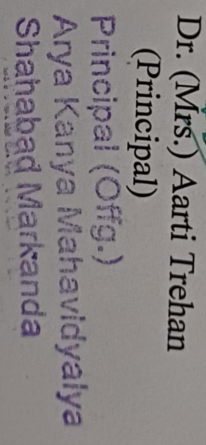 Dr. (Mrs.) Aarti Trehan
(Principal)
Principal (Offg.)
Arya Kanya Mahavidyalya
Shahabad Markanda